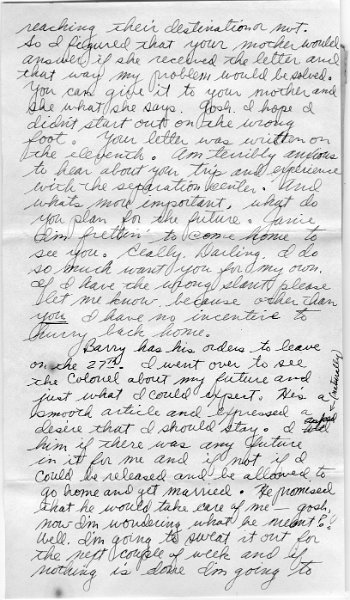 reaching their destination or not.
So I figured that your mother would
answer if she received the letter and
that way my problem would be solved.
You can give it to your mother and
she what she says. Gosh. I hope I
didn't start out on the wrong
foot. Your letter was written on
the eleventh. Am terribly anxious
to hear about your trip and experience
with the separation center. And
whats more important, what do
you plan for the future. Janie
I'm frettin' to come home to
see you. Really, Darling, I do
so much want you for my own.
If I have the wrong slant please
let me know because other than
you I have no incentive to
hurry back home.
Barry has his orders to leave
on the 27th. I went over to see
the Colonel about my future and
just what I could expect. He's a
smooth article and expressed a
desire that I should stay. I asked (naturally)
him if there was any future
in it for me and if not if I
could be released and be allowed to
go home and get married. He promised
that he would take care of me — gosh,
now I'm wondering what he meant?
Well. I'm going to sweat it out for
the next couple of week and if
nothing is done I'm going to